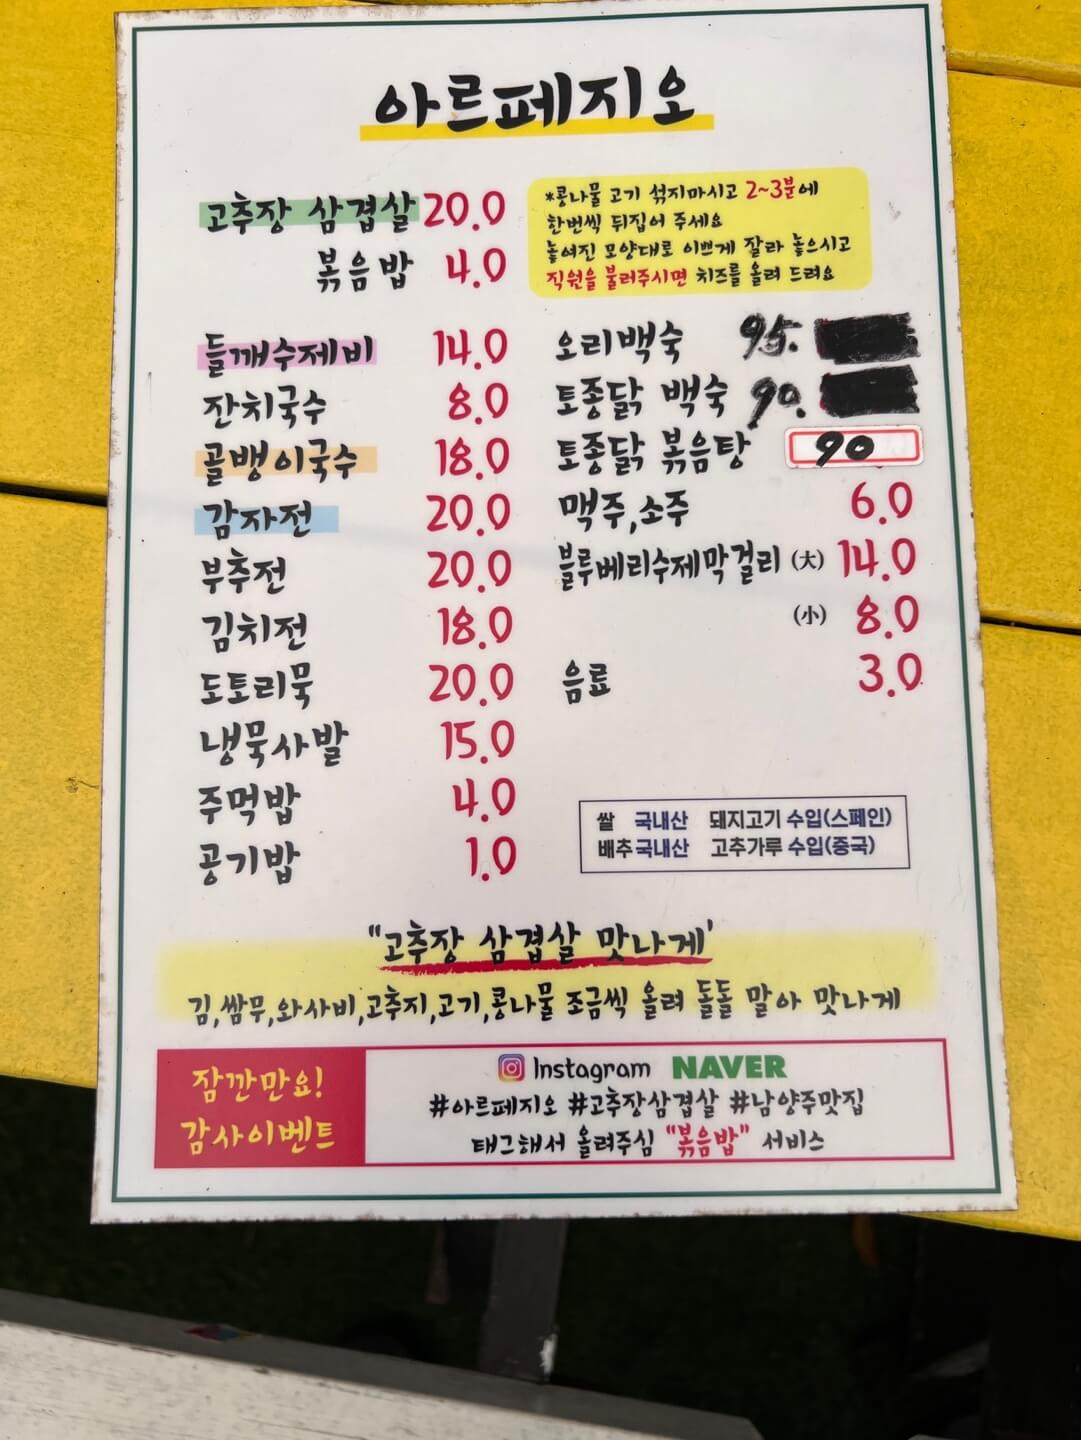 아르페지오
고추장 삼겹살 20.0
볶음밥 4.0
*콩나물 고기 섞지마시고 2~3분에
한번씩 뒤집어 주세요
놓여진 모양대로 이쁘게 잘라 놓으시고
직원을 불러주시면 치즈를 올려 드려요
들깨수제비 14.0
잔치국수 8.0
골뱅이국수 18.0
감자전 20.0
부추전 20.0
김치전 18.0
도토리묵 20.0
냉묵사발 15.0
주먹밥 4.0
공기밥 1.0
오리백숙 95.
토종닭 백숙 90.
토종닭 볶음탕 90
맥주,소주 6.0
블루베리수제막걸리 (大) 14.0
(小) 8.0
음료 3.0
쌀 국내산 돼지고기 수입(스페인)
배추 국내산 고추가루 수입(중국)
"고추장 삼겹살 맛나게'
김,쌈무,와사비,고추지,고기,콩나물 조금씩 올려 돌돌 말아 맛나게
잠깐만요!
감사이벤트
Instagram NAVER
#아르페지오 #고추장삼겹살 #남양주맛집
태그해서 올려주심 "볶음밥" 서비스